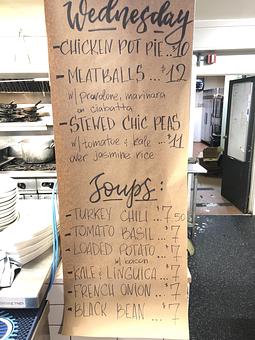 Wednesday
-CHICKEN POT PIE..$10
-MEATBALLS ...$12
w/ provolone, marinara
on ciabatta
-STEWED CHIC PEAS
w/ tomatoe & kale ...$11
over jasmine rice
Soups:
-TURKEY CHILI ..$7.50
-TOMATO BASIL ..$7
-LOADED POTATO ..$7
w/ bacon
-KALE & LINGUICA..$7
-FRENCH ONION ..$7
-BLACK BEAN ...$7